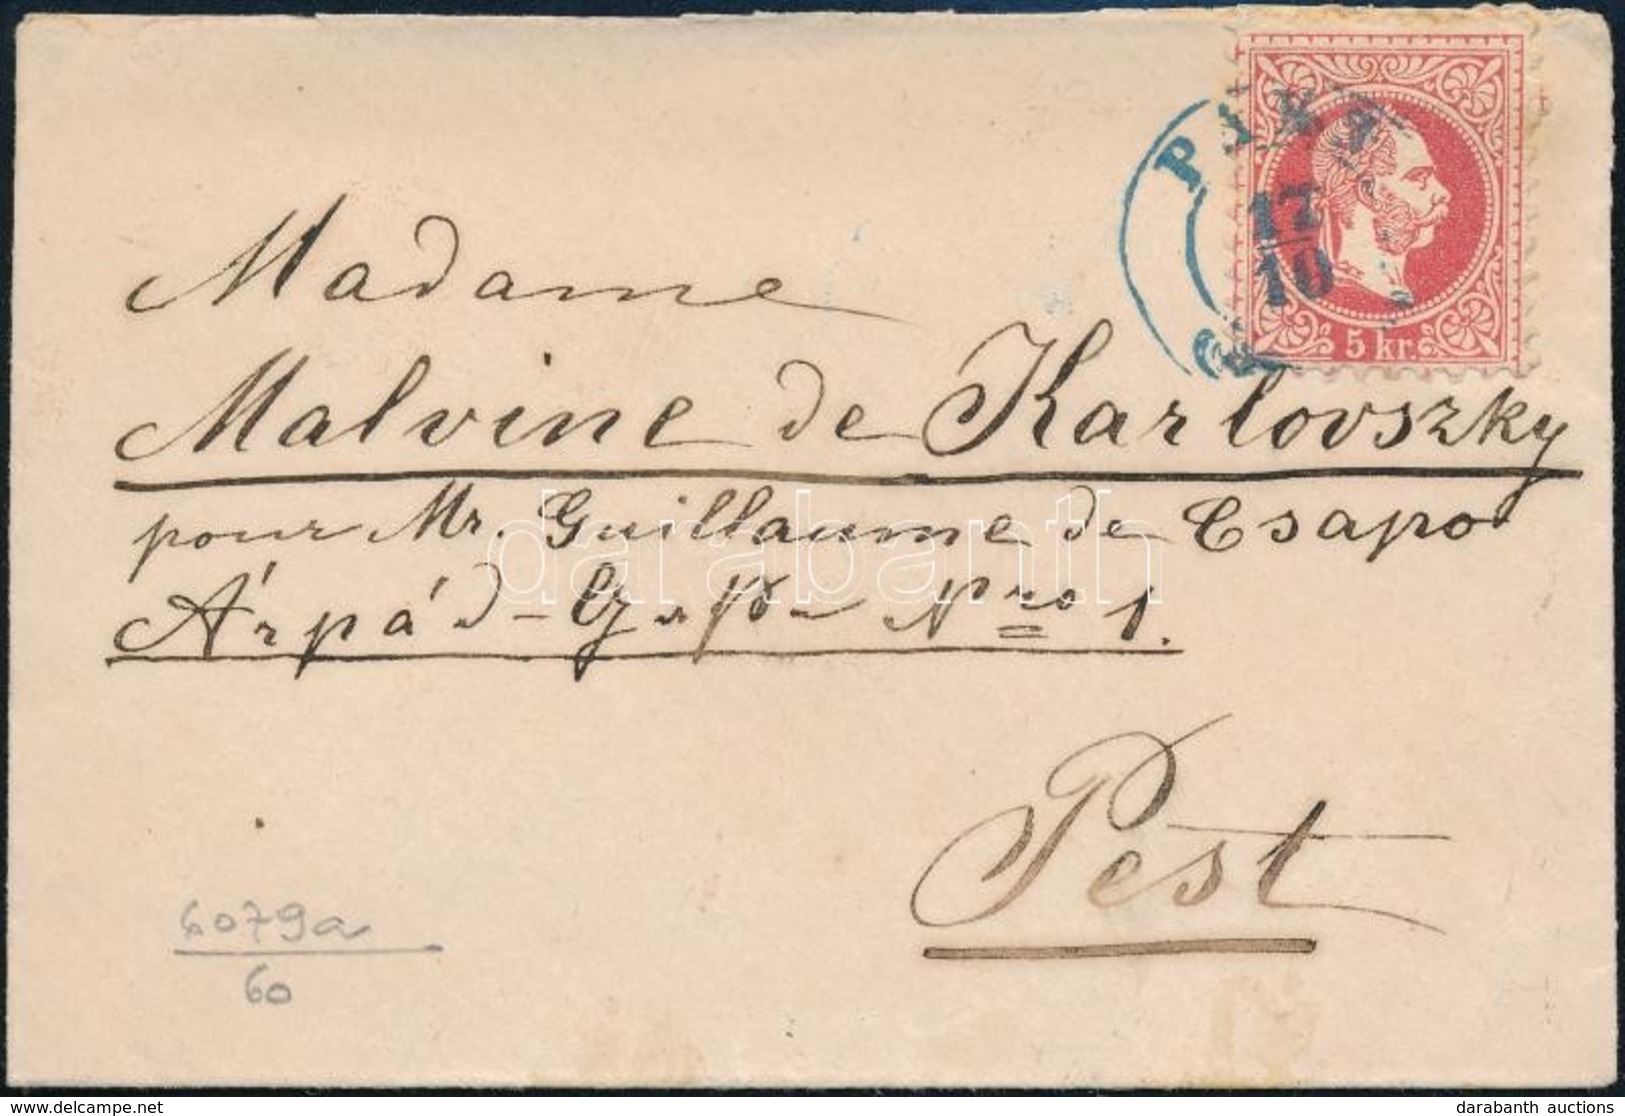 17
10
5 kr.
Madame
Malvine de Karlovszky
pour Mr. Guillaume de Csapo
Árpád - Nro 1.
Pest
6079a
60
darabanth
delcampe.net
darabanth auctions